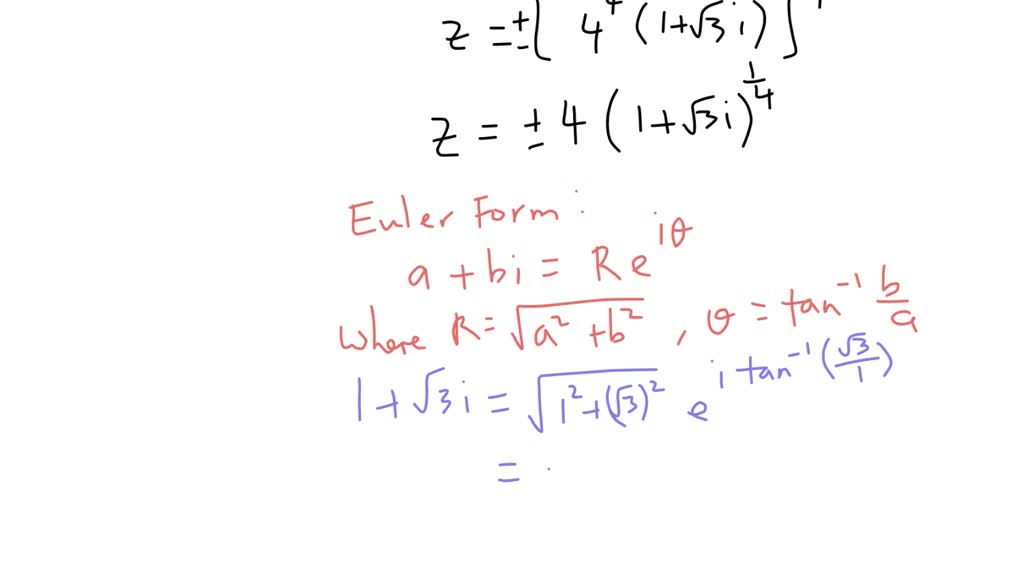 z = ± [ 4⁴ (1+√3 i) ]
z = ± 4 (1+√3 i)^(1/4)
Euler Form :
a + bi = R e^(iθ)
where R = √(a² + b²) , θ = tan⁻¹ b/a
1 + √3 i = √(1² + (√3)²) e^(i tan⁻¹(√3/1))
=